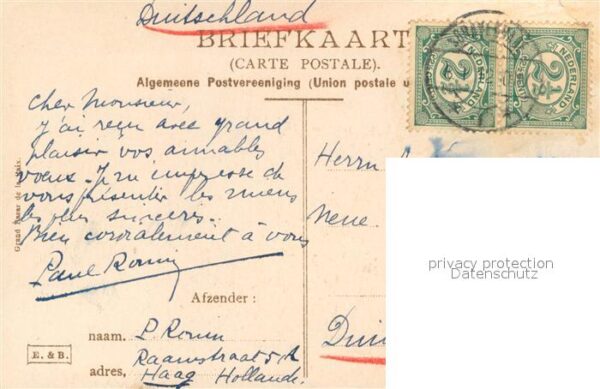 Duitschland
BRIEFKAART
(CARTE POSTALE).
Algemeene Postvereeniging (Union postale u
2½
NEDERLAND
2½
NEDERLAND
Cher Monsieur,
j'ai reçu avec grand
plaisir vos aimables
voeux. Je m'empresse de
vous présenter les miens
les plus sincères.
Bien cordialement à vous
Paul
Grand Bazar de la Haye
Herrn
Neue
Dui
Afzender:
naam. P.
adres, Raamstraat
Haag Hollande.
E. & B.
privacy protection
Datenschutz